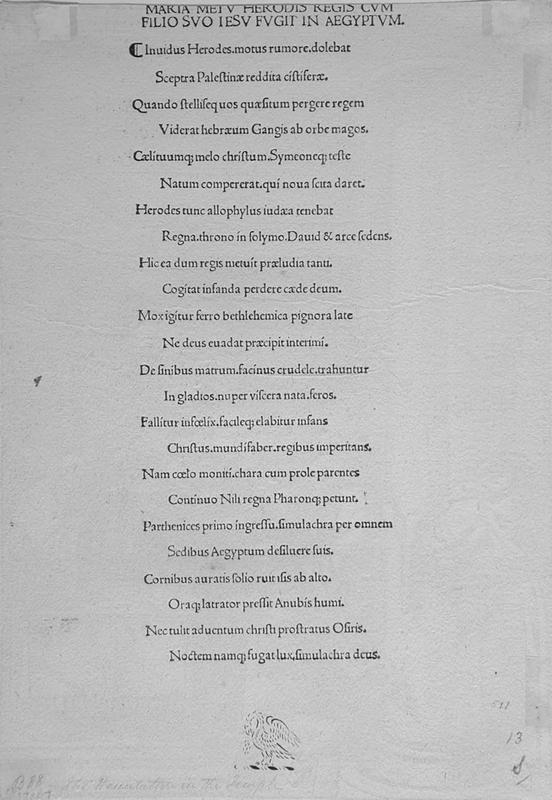 MARIA METV HERODIS REGIS CVM
FILIO SVO IESV FVGIT IN AEGYPTVM.
Inuidus Herodes.motus rumore.dolebat
Sceptra Paleſtinæ reddita ciſtiferæ.
Quando ſtelliſequos quæſitum pergere regem
Viderat hebræum Gangis ab orbe magos.
Cælituumq; melo chriſtum.Symeoneq; teſte
Natum compererat.qui noua ſcita daret.
Herodes tunc allophylus iudæa tenebat
Regna.throno in ſolymo.Dauid & arce ſedens.
Hic ea dum regis metuit præludia tanti.
Cogitat infanda perdere cæde deum.
Mox igitur ferro bethlehemica pignora late
Ne deus euadat præcipit interimi.
De ſinibus matrum.facinus crudele.trahuntur
In gladios.nuper viſcera nata.feros.
Fallitur infœlix.facileq; elabitur infans
Chriſtus.mundifaber.regibus imperitans.
Nam cœlo moniti.chara cum prole parentes
Continuo Nili regna Pharonq; petunt.
Parthenices primo ingreſſu.ſimulachra per omnem
Sedibus Aegyptum deſiluere ſuis.
Cornibus auratis ſolio ruit iſis ab alto.
Oraq; latrator preſſit Anubis humi.
Nec tulit aduentum chriſti proſtratus Oſiris.
Noctem namq; fugat lux,ſimulachra deus.
13
in the Temple